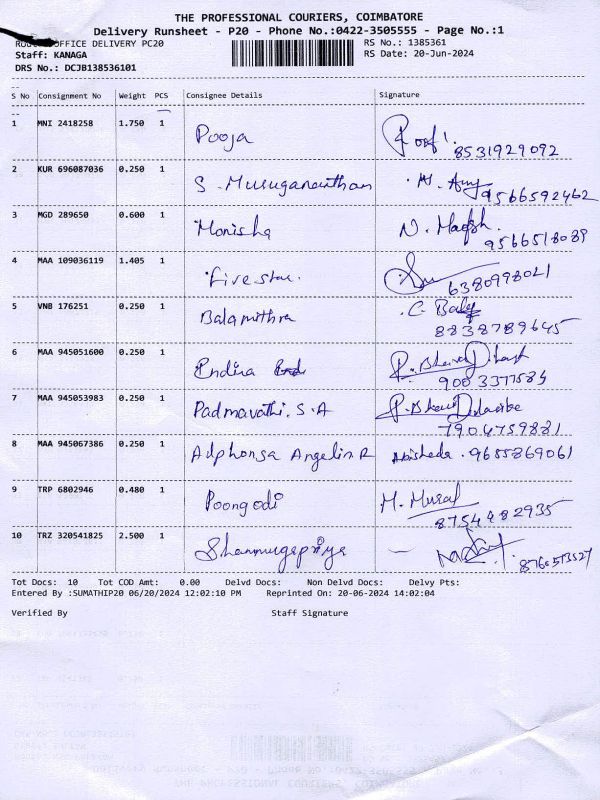 THE PROFESSIONAL COURIERS, COIMBATORE
Delivery Runsheet - P20 - Phone No.:0422-3505555 - Page No.:1
OFFICE DELIVERY PC20
RS No.: 1385361
Staff: KANAGA
RS Date: 20-Jun-2024
DRS No.: DCJB138536101
S No Consignment No Weight PCS Consignee Details Signature
1 MNI 2418258 1.750 1 Pooja
8531929092
2 KUR 696087036 0.250 1 S. Murugananthan
9566592462
3 MGD 289650 0.600 1 Monisha
9566518089
4 MAA 109036119 1.405 1 Five star.
6380998021
5 VNB 176251 0.250 1 Balamithra
8838789645
6 MAA 945051600 0.250 1 Endira
9003377584
7 MAA 945053983 0.250 1 Padmavathi. S. A
7904759831
8 MAA 945067386 0.250 1 Alphonsa Angelin R 9655869061
9 TRP 6802946 0.480 1 Poongodi
8754482935
10 TRZ 320541825 2.500 1 Shanmugapriya
Tot Docs: 10 Tot COD Amt: 0.00 Delvd Docs: Non Delvd Docs: Delvy Pts:
Entered By :SUMATHIP20 06/20/2024 12:02:10 PM Reprinted On: 20-06-2024 14:02:04
Verified By Staff Signature